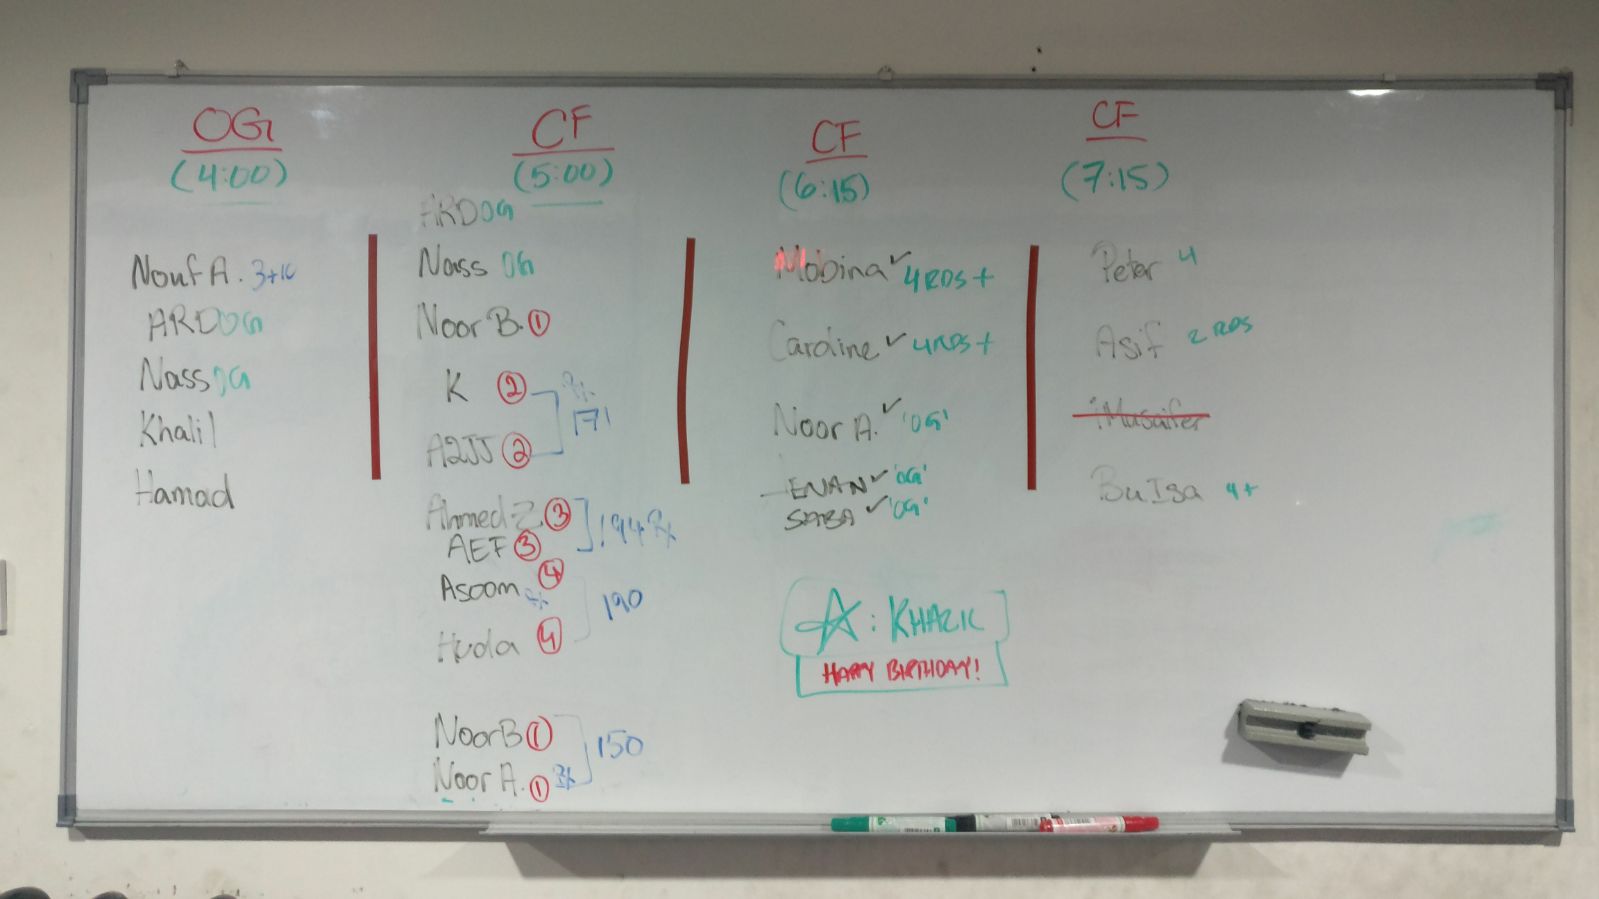 OG
(4:00)
Nouf A. 3+
ARD OG
Nass OG
Khalil
Hamad
CF
(5:00)
ARD OG
Nass OG
Noor B. 1
K 2
A2JJ 2
Rx
171
Ahmed Z 3
AEF 3
194 Rx
Asoom 4
Rx
Huda 4
190
Noor B 1
Noor A. 1 Rx
150
CF
(6:15)
Mobina ✓ 4RDS +
Caroline ✓ 4RDS +
Noor A. ✓ 'OG'
ENAN ✓ 'OG'
SABA ✓ 'OG'
☆: KHALIL
HAPPY BIRTHDAY!
CF
(7:15)
Peter 4
Asif 2 RDS
Musaifer
Bu Isa 4+